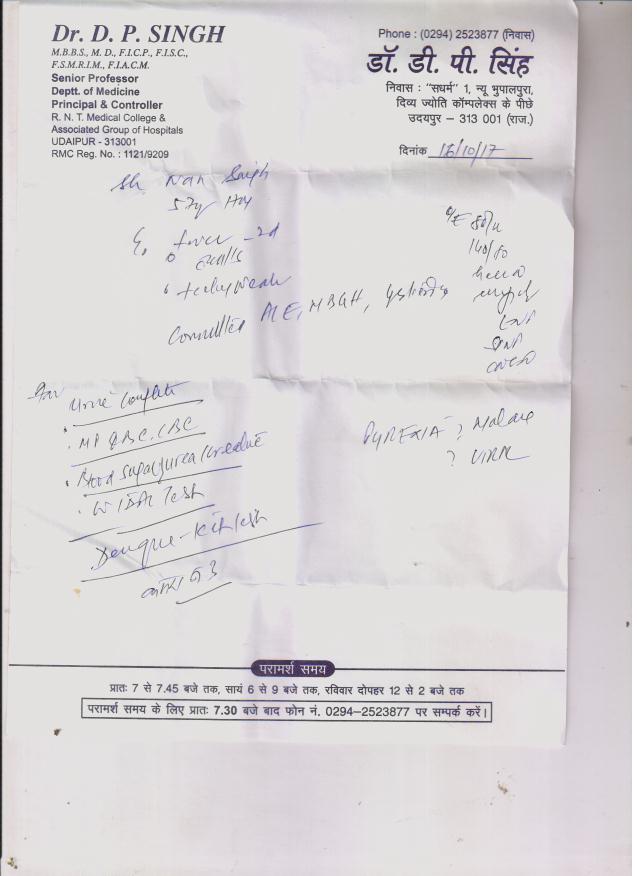 Dr. D. P. SINGH
M.B.B.S., M. D., F.I.C.P., F.I.S.C.,
F.S.M.R.I.M., F.I.A.C.M.
Senior Professor
Deptt. of Medicine
Principal & Controller
R. N. T. Medical College &
Associated Group of Hospitals
UDAIPUR - 313001
RMC Reg. No. : 1121/9209
Phone : (0294) 2523877 (निवास)
डॉ. डी. पी. सिंह
निवास : "सधर्म" 1, न्यू भुपालपुरा,
दिव्य ज्योति कॉम्पलेक्स के पीछे
उदयपुर – 313 001 (राज.)
दिनांक 16/10/17
Sh Nan Singh
57y
fever - 2d
MBGH,
140/80
Urine Complete
MP QBC, CBC
Blood Sugar/urea/creatine
WIDAL Test
Dengue - Kit Test
PYREXIA ? Malaria
? VIRAL
परामर्श समय
प्रातः 7 से 7.45 बजे तक, सायं 6 से 9 बजे तक, रविवार दोपहर 12 से 2 बजे तक
परामर्श समय के लिए प्रातः 7.30 बजे बाद फोन नं. 0294–2523877 पर सम्पर्क करें।